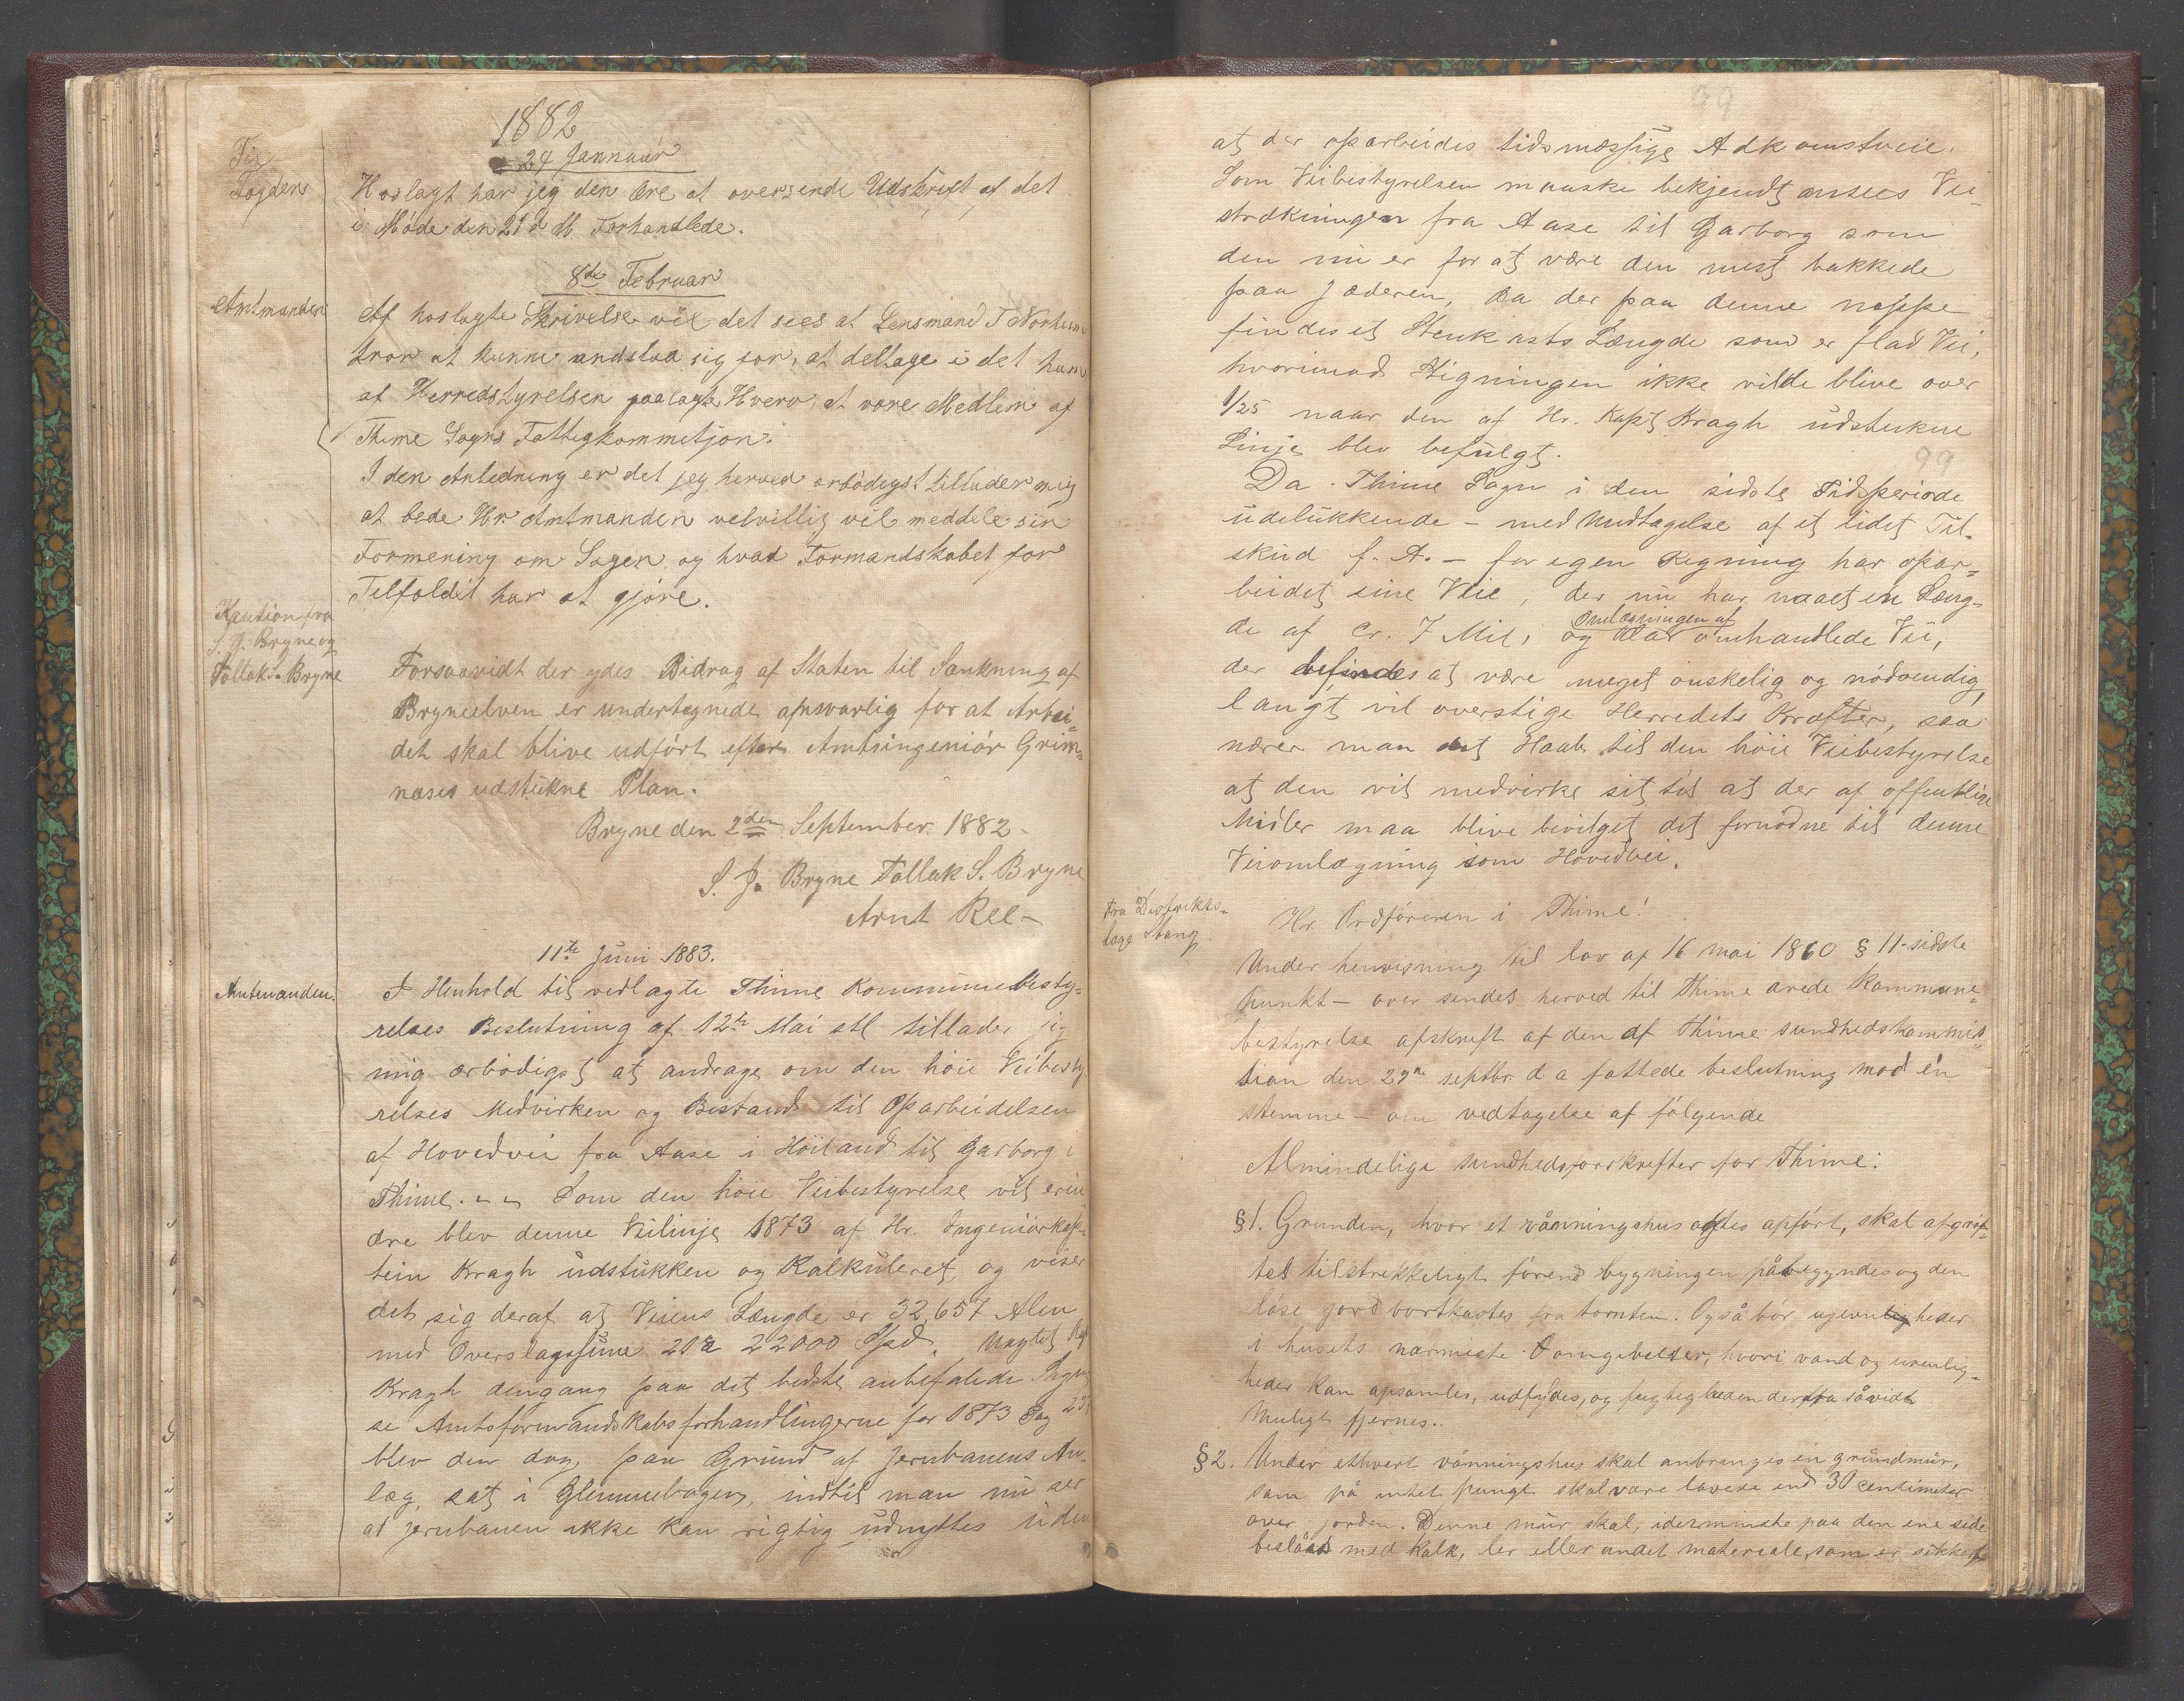 1882
24 Januar
Til
Fogden
Hoslagt har jeg den ære at oversende Udskrift af det
i Møde den 21 d M. Forhandlede.
8de Februar
Amtmanden
Af hoslagte Skrivelse vil det sees at Lensmand T Norheim
tror at kunne undslaa sig for, at deltage i det ham
af Herredstyrelsen paalagte Hverv, at være Medlem af
Thime Sogns Fattigkommisjon.
I den Anledning er det jeg herved ærbödigst tillader mig
at bede Hr Amtmanden velvillig vil meddele sin
Formening om Sagen og hvad Formandskabet for
Tilfældet har at gjöre.
Kaution fra
S. J. Bryne og
Tollak S. Bryne
Forsaavidt der ydes Bidrag af Staten til Sænkning af
Bryneelven er undertegnede ansvarlig for at Arbei-
det skal blive udfört efter Amtsingeniör Grim-
næses udstukne Plan.
Bryne den 2den September 1882.
S. J. Bryne Tollak S. Bryne
Arnt Ree
11te Juni 1883.
Amtmanden.
I Henhold til vedlagte Thime Kommunebesty-
relses Beslutning af 12te Mai stl tillader jeg
mig ærbödigst at andrage om den höie Veibesty
relses Medvirken og Bistand til Oparbeidelsen
af Hovedvei fra Aase i Höiland til Garborg i
Thime. Som den höie Veibestyrelse vil erin
dre blev denne Veilinje 1873 af Hr. Ingeniörkap-
tein Kragh udstukken og Kalkuleret, og viser
det sig deraf at Veiens Længde er 32,657 Alen
med Overslagssum 21 a 22000 Spd. Uagtet Kap
Kragh dengang paa det bedste anbefalede Sagen
se Amtsformandskabsforhandlingerne for 1873 Sag 23
blev den dog, paa Grund af Jernbanens An-
læg, sat i Glemmebogen, indtil man nu ser
at Jernbanen ikke kan rigtig udnyttes uden
99
at der oparbeides tidsmæssige Adkomstveie.
Som Veibestyrelsen maaske bekjendt ansees Vei-
strækningen fra Aase til Garborg som
den nu er for at være den mest bakkede
paa Jæderen, da der paa denne neppe
findes et Stenkasts Længde som er flad Vei,
hvorimod Stigningen ikke vilde blive over
1/25 naar den af Hr. Kapt Kragh udstukne
Linje blev befulgt.
99
Da Thime Sogn i den sidste Tidsperiode
udelukkende - med Undtagelse af et lidet Til-
skud f. A. - for egen Regning har opar-
beidet sine Veie, der nu har naaet en Læng-
de af cr. 7 Mil, og
Omlægningen af
omhandlede Vei,
der befindes at være meget önskelig og nödvendig,
langt vil overstige Herredets Kræfter, saa
nærer man det Haab til den höie Veibestyrelse
at den vil medvirke sit til at der af offentlige
Midler maa blive bevilget det fornödne til denne
Veiomlægning som Hovedvei.
Fra Distrikts-
læge Stang
Hr. Ordföreren i Thime!
Under henvisning til lov af 16 mai 1860 § 11 - sidste
Punkt - over sendes herved til Thime ærede Kommune-
bestyrelse afskrift af den af Thime sundhedskommis
sion den 29de septbr. d. a fattede beslutning mod én
stemme - om vedtagelse af fölgende
Almindelige sundhedsforskrifter for Thime:
§ 1. Grunden, hvor et våningshus agtes opfört, skal afgröf-
tes tilstrekkeligt förend bygningen påbegyndes og den
löse jord bortkastes fra tomten. Også bör ujevnheder
i husets nærmeste omgivelser, hvori vand og urenlig-
heder kan opsamles, udfyldes, og fugtigheden derfra såvidt
Muligt fjernes.
§ 2. Under ethvert våningshus skal anbringes en grundmur,
som på intet pungt skal være lavere end 30 centimeter
over jorden. Denne mur skal, idetmindste paa den ene side
beslåes med Kalk, ler eller andet materiale, som er sikkert